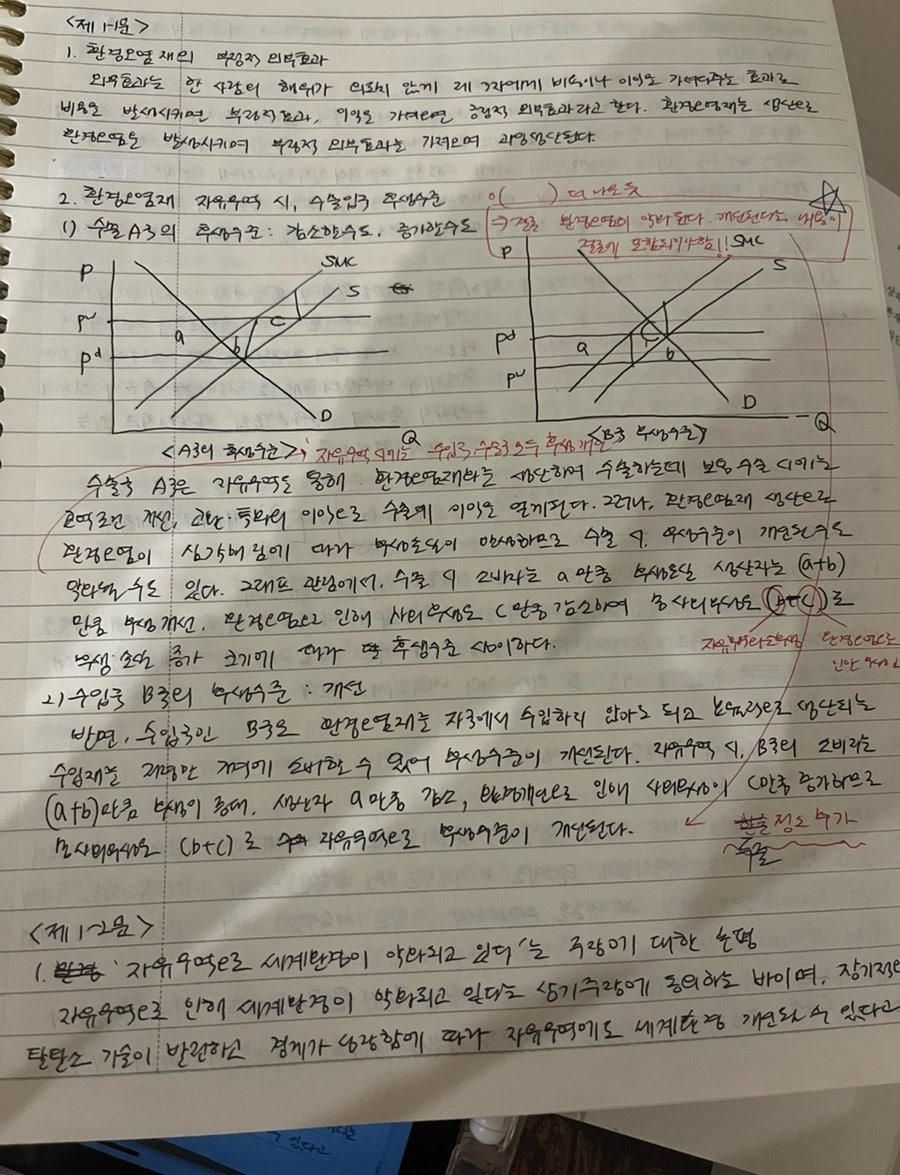 <제 1-1문>
1. 환경오염재의 부정적 외부효과
외부효과는 한 사람의 행위가 의도치 않게 제 3자에게 비용이나 이익을 가져다주는 효과로
비용을 발생시키면 부정적효과, 이익을 가져오면 긍정적 외부효과라고 한다. 환경오염재는 생산으로
환경오염을 발생시키며 부정적 외부효과를 가져오며 과잉생산된다.
2. 환경오염재 자유무역 시, 수출입국 후생수준
○( ) 더 나올 듯
1) 수출 A국의 후생수준 : 감소할수도, 증가할수도
→ 결론 환경오염이 악화된다. 개선된다는 내용이
결론에 포함되어야함!!
P
SMC
S
Pw
Pd
a
b
c
D
Q
P
SMC
S
Pd
Pw
a
c
b
D
Q
<A국의 후생수준>
<B국 후생수준>
자유무역 시에는 수입국, 수출국 모두 후생개선
수출국 A국은 자유무역을 통해 환경오염재라는 생산하여 수출하는데 보통 수출 시에는
교역조건 개선, 교환·특화의 이익으로 수출에 이익을 얻게된다. 그러나, 환경오염재 생산으로
환경오염이 심각해짐에 따라 후생손실이 발생하므로 수출 시, 후생수준이 개선될수도
악화될 수도 있다. 그래프 관점에서, 수출 시 소비자는 a만큼 후생손실 생산자는 (a+b)
만큼 후생개선, 환경오염으로 인해 사회후생은 c만큼 감소하여 총 사회후생은 (b-c)로
후생 손실 증가 크기에 따라 후생수준 상이하다.
자유무역으로
환경오염으로
인한
2) 수입국 B국의 후생수준 : 개선
반면, 수입국인 B국은 환경오염재를 자국에서 수입하지 않아도 되고 생산되는
수입재를 저렴한 가격에 소비할 수 있어 후생수준이 개선된다. 자유무역 시, B국의 소비자는
(a+b)만큼 후생이 증대, 생산자 a만큼 감소, 환경개선으로 인해 사회후생이 c만큼 증가하므로
총사회후생은 (b+c)로 자유무역으로 후생수준이 개선된다.
한줄 정도 추가
<제 1-2문>
1. '자유무역으로 세계환경이 악화되고 있다'는 주장에 대한 논평
자유무역으로 인해 세계환경이 악화되고 있다는 상기주장에 동의하는 바이며, 장기적으로
탈탄소 기술이 발전하고 경제가 성장함에 따라 자유무역에도 세계환경 개선될 수 있다고